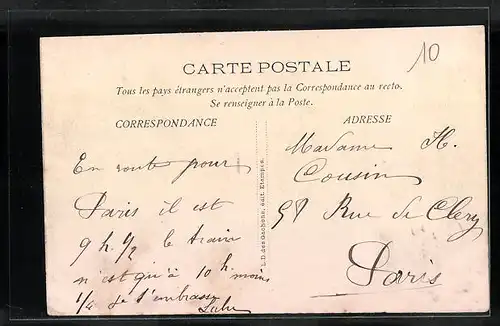 10
CARTE POSTALE
Tous les pays étrangers n'acceptent pas la Correspondance au recto.
Se renseigner à la Poste.
CORRESPONDANCE
En route pour
Paris il est
9 h. 1/2 le train
n'est qu'à 10 h moins
1/4 je t'embrasse
ADRESSE
Madame H.
Cousin
Rue de Clery
Paris
L. D. des Gachons, édit. Etampes.